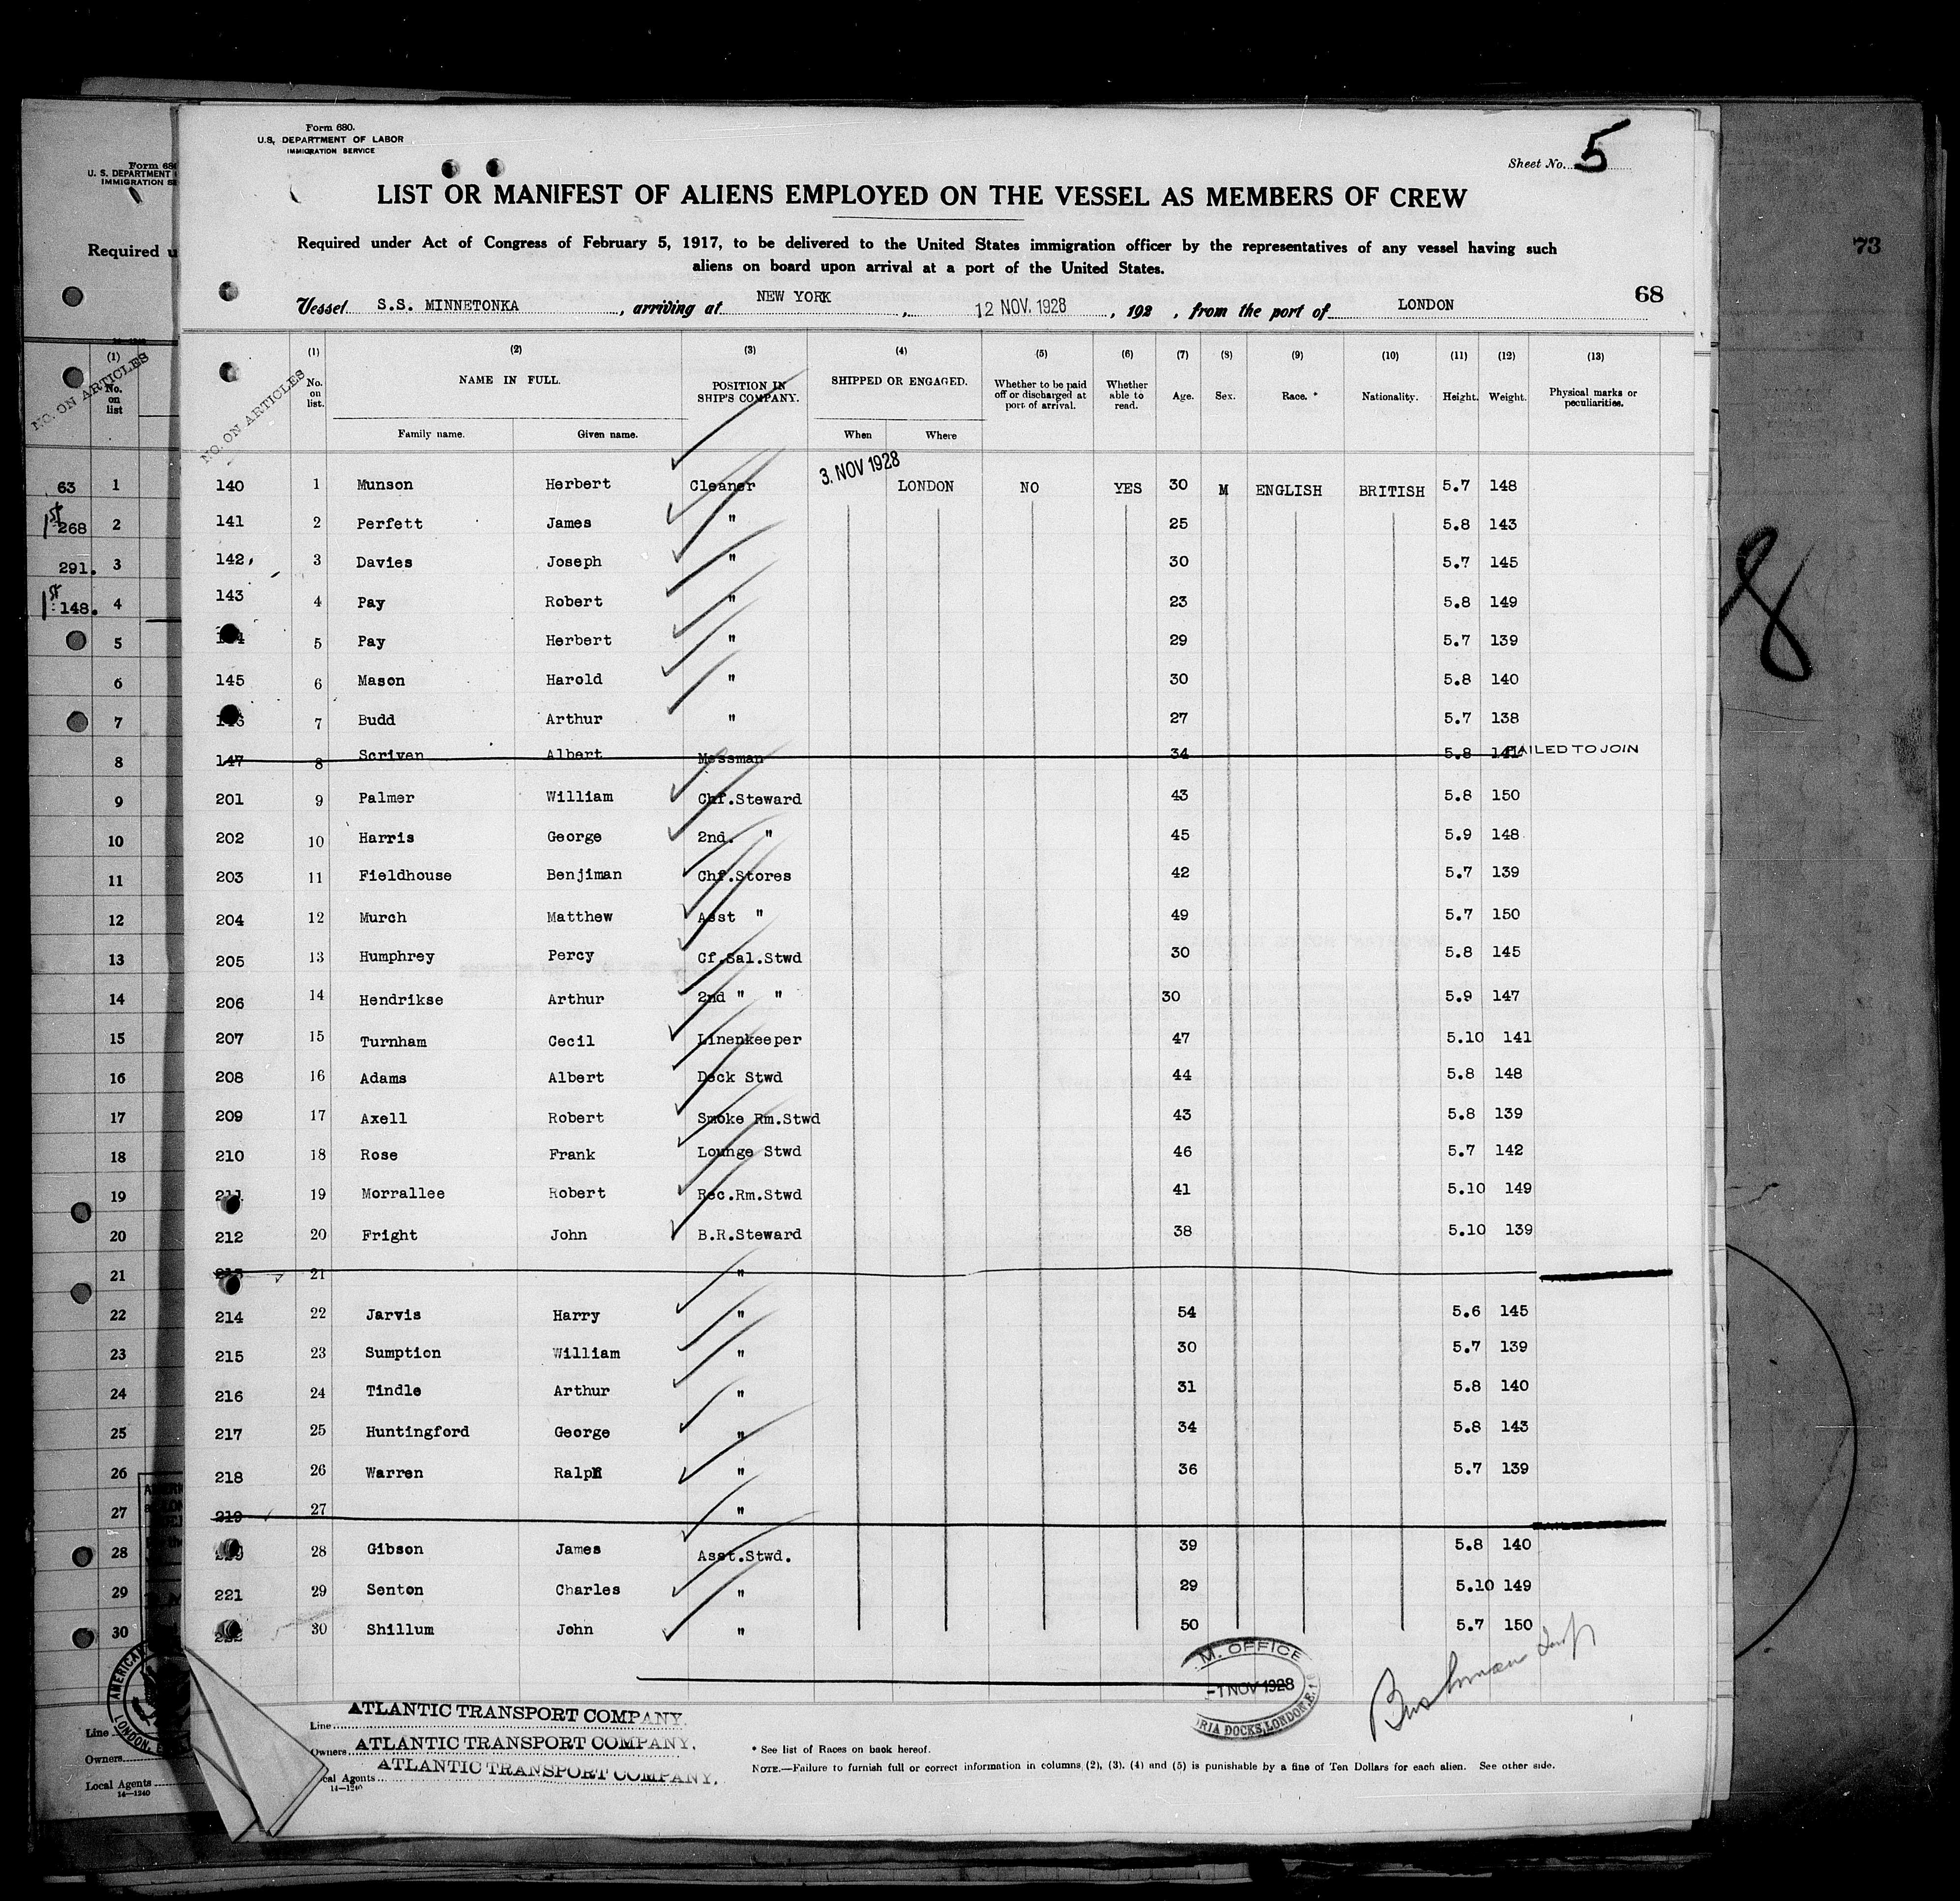 Form 680.
U.S. DEPARTMENT OF LABOR
IMMIGRATION SERVICE
Sheet No. 5
LIST OR MANIFEST OF ALIENS EMPLOYED ON THE VESSEL AS MEMBERS OF CREW
Required under Act of Congress of February 5, 1917, to be delivered to the United States immigration officer by the representatives of any vessel having such
aliens on board upon arrival at a port of the United States.
68
Vessel S.S. MINNETONKA, arriving at NEW YORK, 12 NOV. 1928, 192 , from the port of LONDON
NO. ON ARTICLES
(1) (2) (3) (4) (5) (6) (7) (8) (9) (10) (11) (12) (13)
No. on list. NAME IN FULL. POSITION IN SHIP'S COMPANY. SHIPPED OR ENGAGED. Whether to be paid off or discharged at port of arrival. Whether able to read. Age. Sex. Race.* Nationality. Height. Weight. Physical marks or peculiarities.
Family name. Given name. When Where
140 1 Munson Herbert Cleaner 3. NOV 1928 LONDON NO YES 30 M ENGLISH BRITISH 5.7 148
141 2 Perfett James " 25 5.8 143
142 3 Davies Joseph " 30 5.7 145
143 4 Pay Robert " 23 5.8 149
5 Pay Herbert " 29 5.7 139
145 6 Mason Harold " 30 5.8 140
7 Budd Arthur " 27 5.7 138
147 8 Scriven Albert Messman 34 5.8 141 FAILED TO JOIN
201 9 Palmer William Chf.Steward 43 5.8 150
202 10 Harris George 2nd. " 45 5.9 148
203 11 Fieldhouse Benjiman Chf.Stores 42 5.7 139
204 12 Murch Matthew Asst " 49 5.7 150
205 13 Humphrey Percy Cf.Sal.Stwd 30 5.8 145
206 14 Hendrikse Arthur 2nd " " 30 5.9 147
207 15 Turnham Cecil Linenkeeper 47 5.10 141
208 16 Adams Albert Deck Stwd 44 5.8 148
209 17 Axell Robert Smoke Rm.Stwd 43 5.8 139
210 18 Rose Frank Lounge Stwd 46 5.7 142
211 19 Morrallee Robert Rec.Rm.Stwd 41 5.10 149
212 20 Fright John B.R.Steward 38 5.10 139
213 21 "
214 22 Jarvis Harry " 54 5.6 145
215 23 Sumption William " 30 5.7 139
216 24 Tindle Arthur " 31 5.8 140
217 25 Huntingford George " 34 5.8 143
218 26 Warren Ralph " 36 5.7 139
219 27 "
28 Gibson James Asst.Stwd. 39 5.8 140
221 29 Senton Charles " 29 5.10 149
222 30 Shillum John " 50 5.7 150
M. OFFICE
-1 NOV 1928
RIA DOCKS, LONDON, E.
Line ATLANTIC TRANSPORT COMPANY.
Owners ATLANTIC TRANSPORT COMPANY.
cal Agents ATLANTIC TRANSPORT COMPANY.
14—1240
* See list of Races on back hereof.
NOTE.—Failure to furnish full or correct information in columns (2), (3), (4) and (5) is punishable by a fine of Ten Dollars for each alien. See other side.
Form 68
U. S. DEPARTMENT
IMMIGRATION SE
Required u
NO. ON ARTICLES
(1)
No. on list
63 1
1st 268 2
291. 3
1st 148. 4
5
6
7
8
9
10
11
12
13
14
15
16
17
18
19
20
21
22
23
24
25
26
27
28
29
30
AMERICAN
LONDON, E
Line
Owners
Local Agents
14—1240
73
8